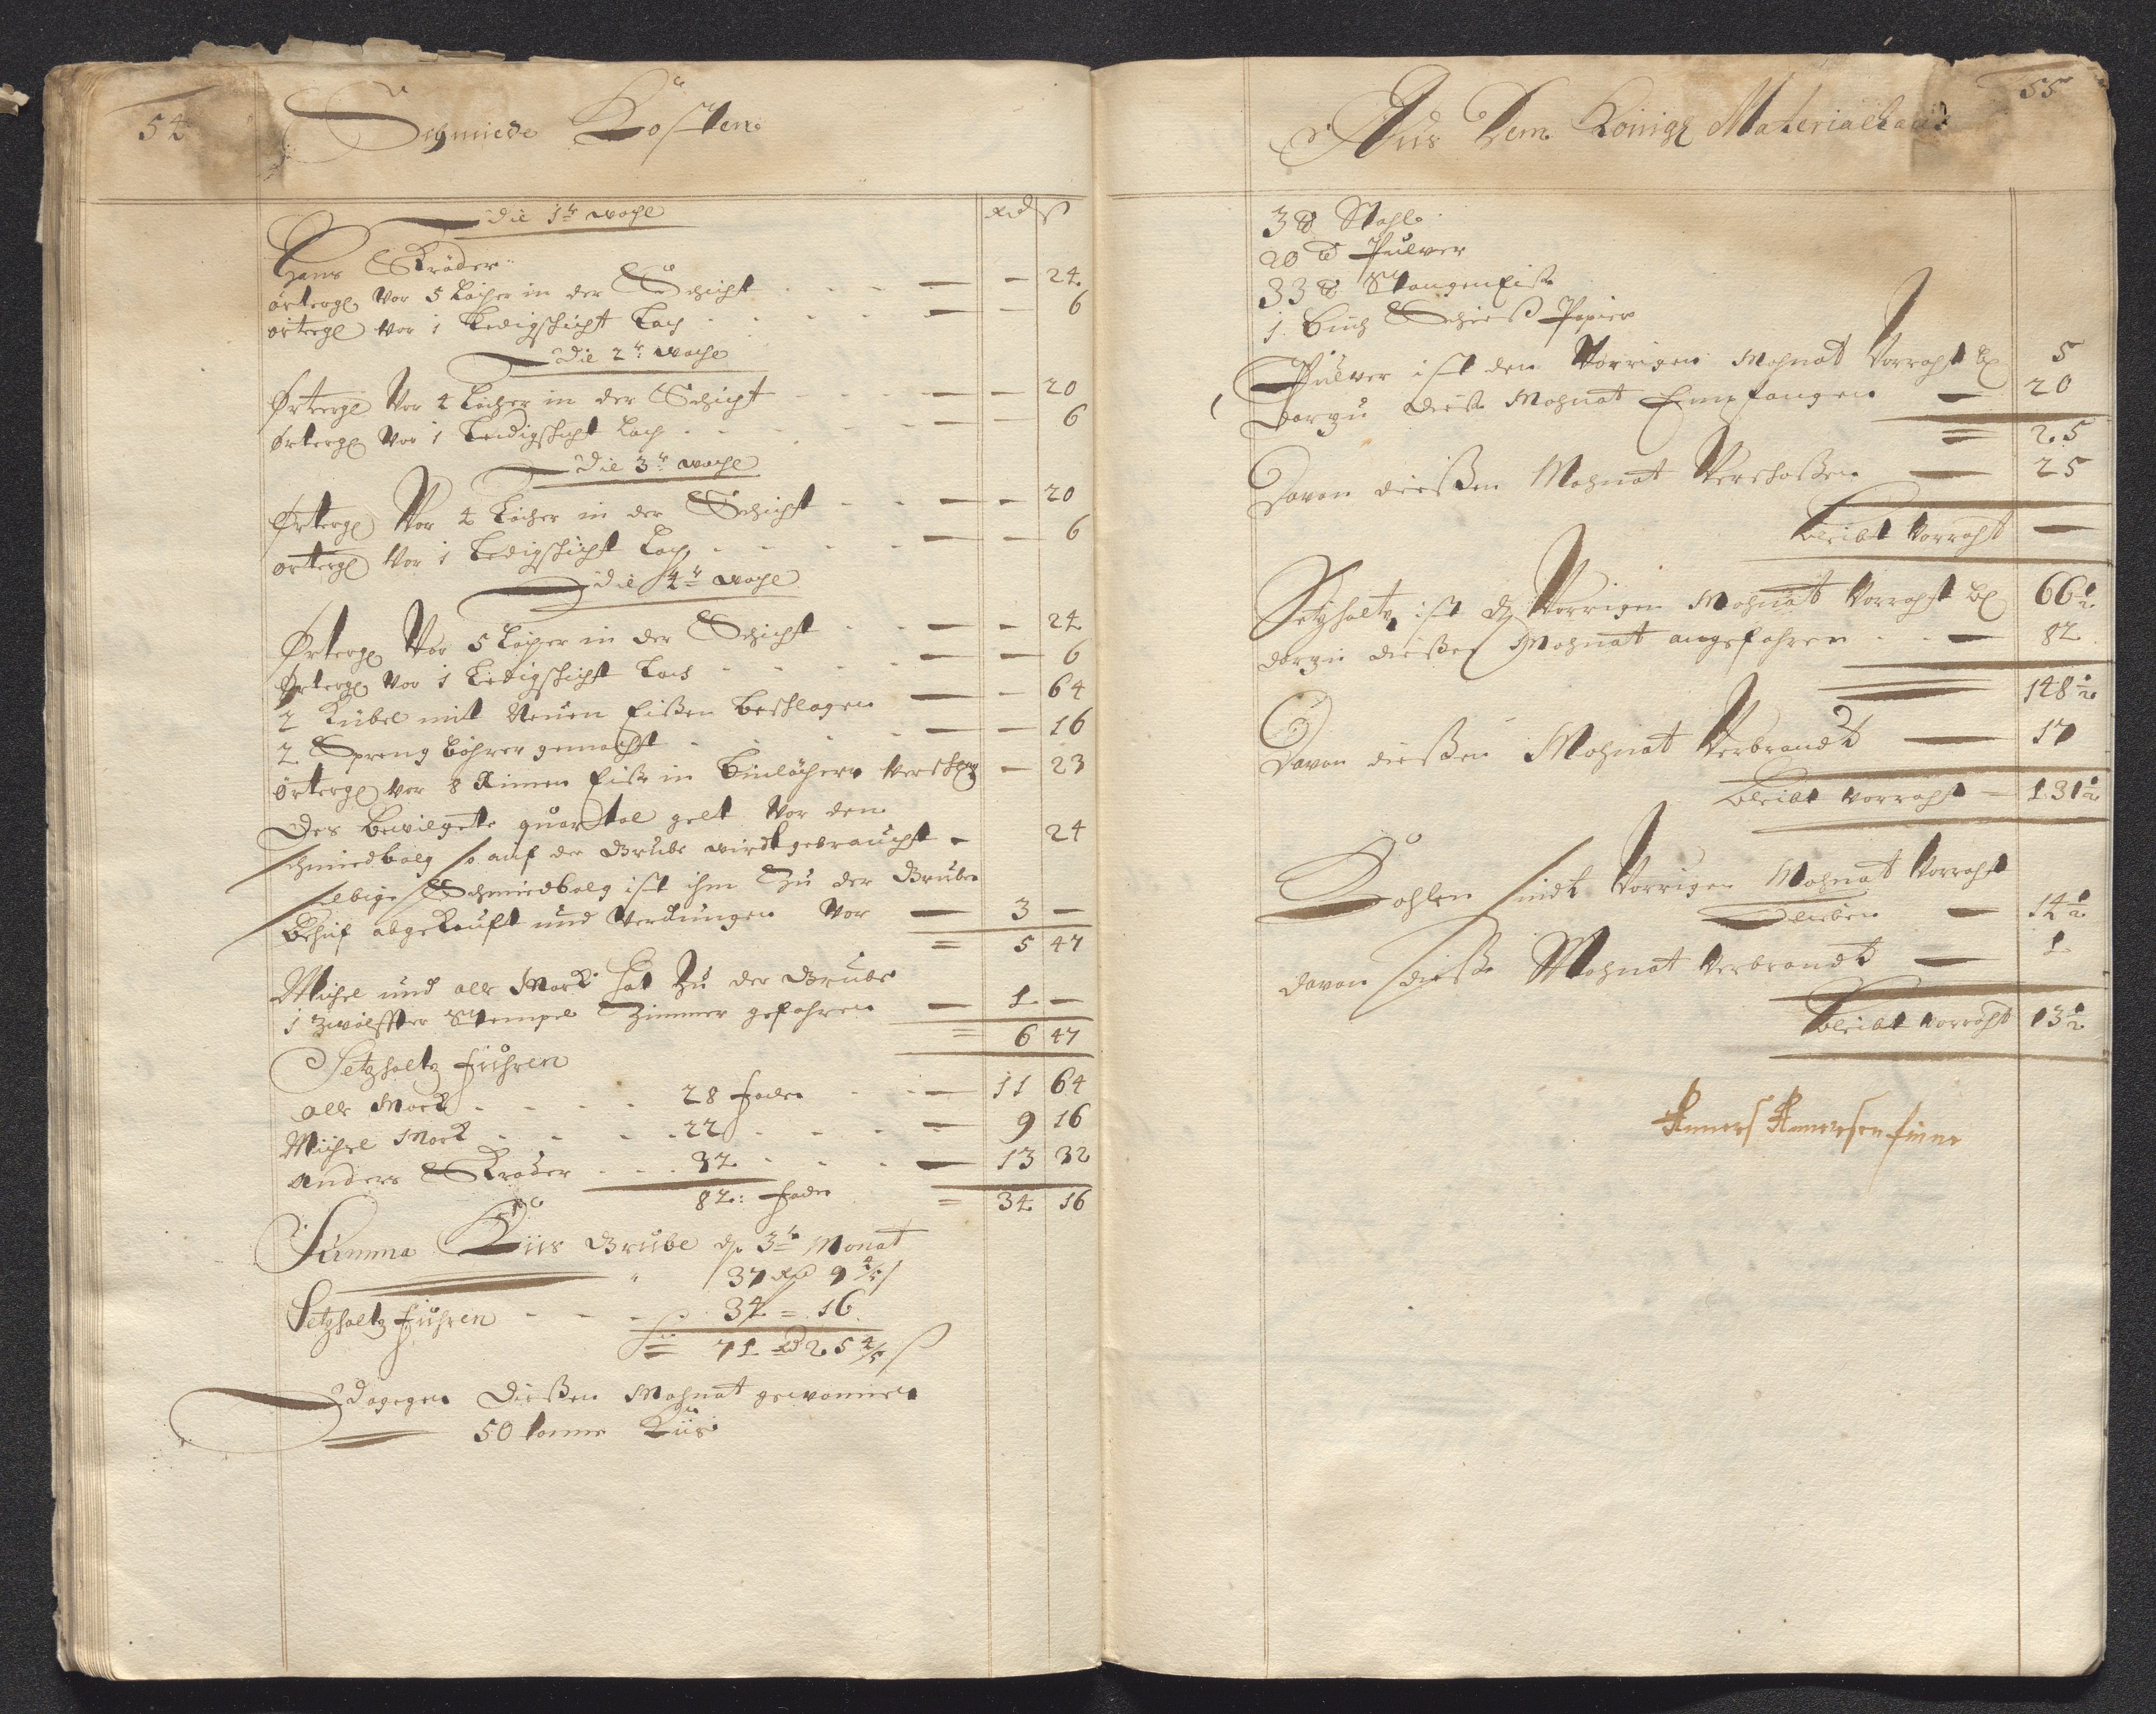 54
Schmiede Kosten
Die 1te woche
Rd ß
Hans Skräder
örtergl vor 5 Löcher in der Schicht — — 24
örtergl vor 1 Ledigschicht Loch — — 6
Die 2te woche
Örtergl vor 4 Löcher in der Schicht — — 20
örtergl vor 1 Ledigschicht Loch — — 6
Die 3te woche
Örtergl Vor 4 Löcher in der Schicht — — 20
örtergl vor 1 Ledigschicht Loch — — 6
Die 4te woche
Örtergl Vor 5 Löcher in der Schicht — — 24
Örtergl vor 1 Ledigschicht Loch — — 6
2 Kübel mit Neuen Eißen Beschlagen — — 64
2 Spreng Böhrer gemacht — — 16
örtergl vor 8 Eiße in — 23
Des Bewilgete quartal gelt Vor den
schmiedbalg so auf der Grube wirdt gebraucht — 24
selbige Schmiedbalg ist ihm Zu der Gruben
Behuf abgekauft und Verdungen Vor — 3 —
= 5 47
Michel und olle Mock hat Zu der Grube
1 Zwölffter Stempel Zimmer gefahren — 1 —
= 6 47
Setzholtz führen
olle Mock 28 fader — 11 64
Michel Mock 22 — 9 16
Anders Skräder 32 — 13 32
82: fader = 34 16
Summa Kiis Grube 3te Monat
37 Rd 9 4/5 ß
Setzholtz führen 34 = 16
= 71 Rd 25 4/5 ß
Dagegen Dießen Mohnat gewonnen
50 tonne Kiis
55
Aus Dem Königl Materialhaus
3 ℔ Stahl
20 ℔ Pulver
33 ℔ Stangen Eiße
1. Buch Schieß Papier
Pulver ist den Vorrigen Mohnat Vorraht 5
Darzu dieße Mohnat Empfangen — 20
= 25
Davon dießen Mohnat Verschoßen — 25
bleibt Vorraht —
Setzholtz ist Vorrigen Mohnat Vorraht 66 1/2
darzu dießen Mohnat angefahren — 82
148 1/2
Davon dießen Mohnat Verbrandt — 17
bleibt vorraht — 131 1/2
Kohlen sindt Vorrigen Mohnat Vorraht
blieben — 14 1/2
davon dieße Mohnat Verbrandt — 1
bleibt vorraht 13 1/2
Amners Amnersen finne